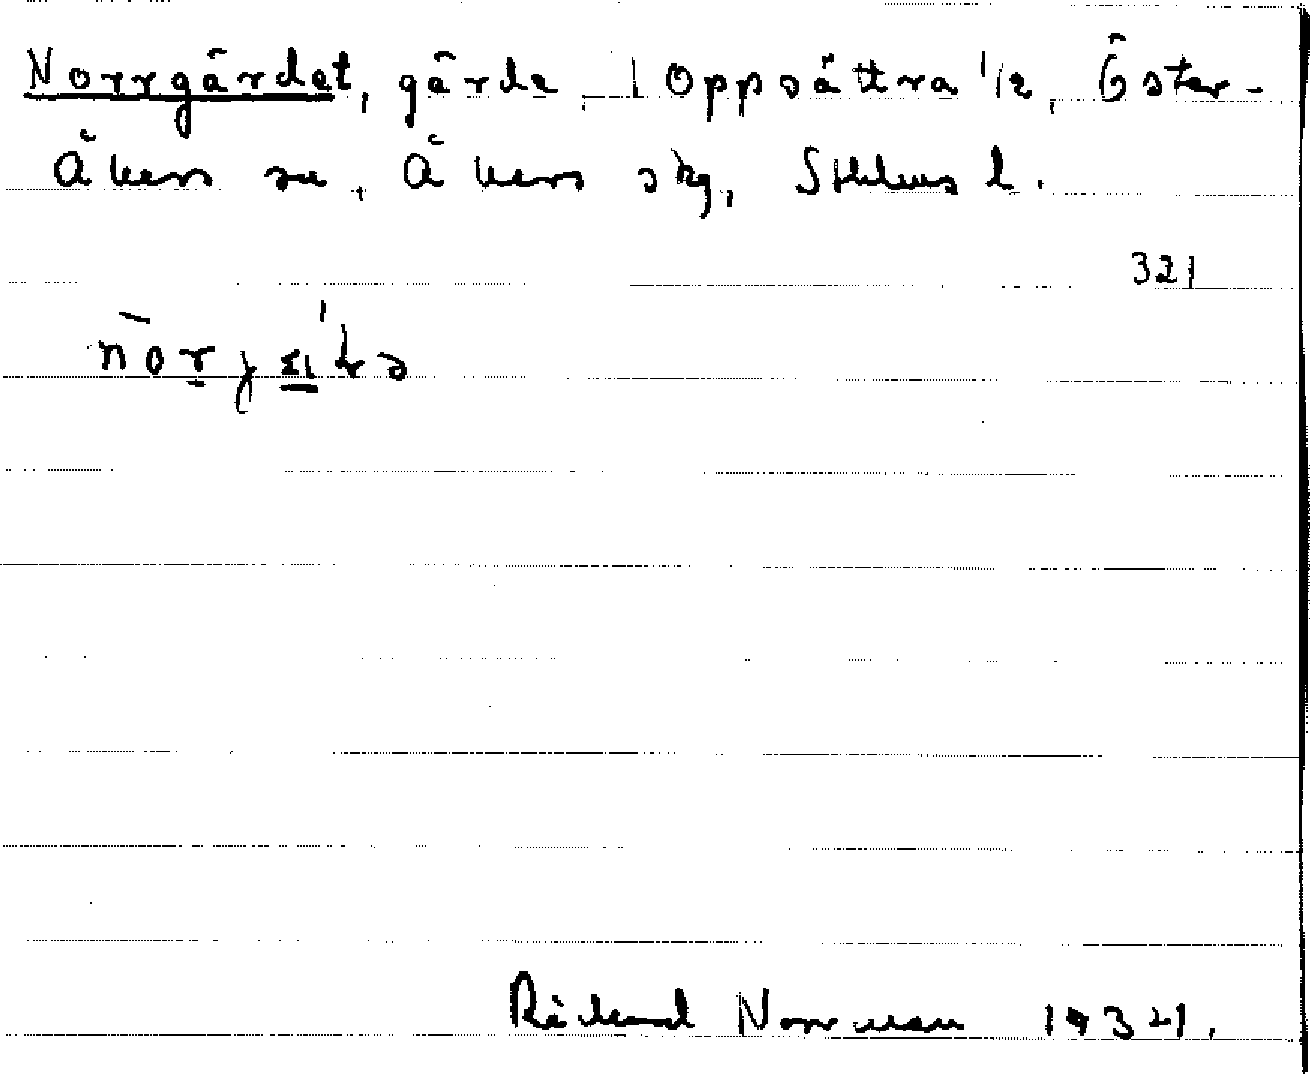 Norrgärdet, gärde, 1 Oppsättra 1/2, Öster-
Åkers sn, Åkers skg, Sthlms l.
321
Rickard Norrman 1934.